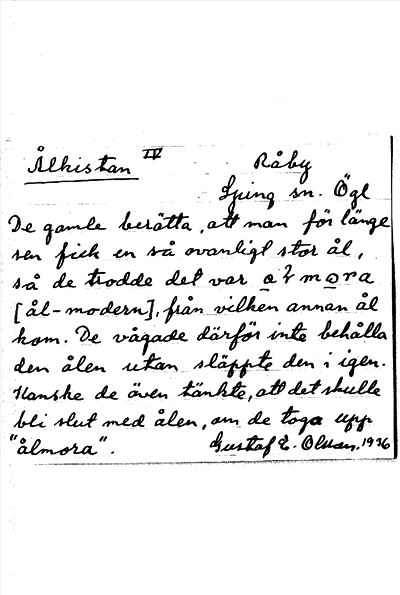 Ålkistan IV Råby
Ljung sn. Ögl
De gamle berätta, att man för länge
sen fick en så ovanligt stor ål,
så de trodde det var a̲ƚmo̲ra
[ål-modern], från vilken annan ål
kom. De vågade därför inte behålla
den ålen utan släppte den i igen.
Kanske de även tänkte, att det skulle
bli slut med ålen, om de toga upp
"ålmora". Gustaf E. Olsson. 1936